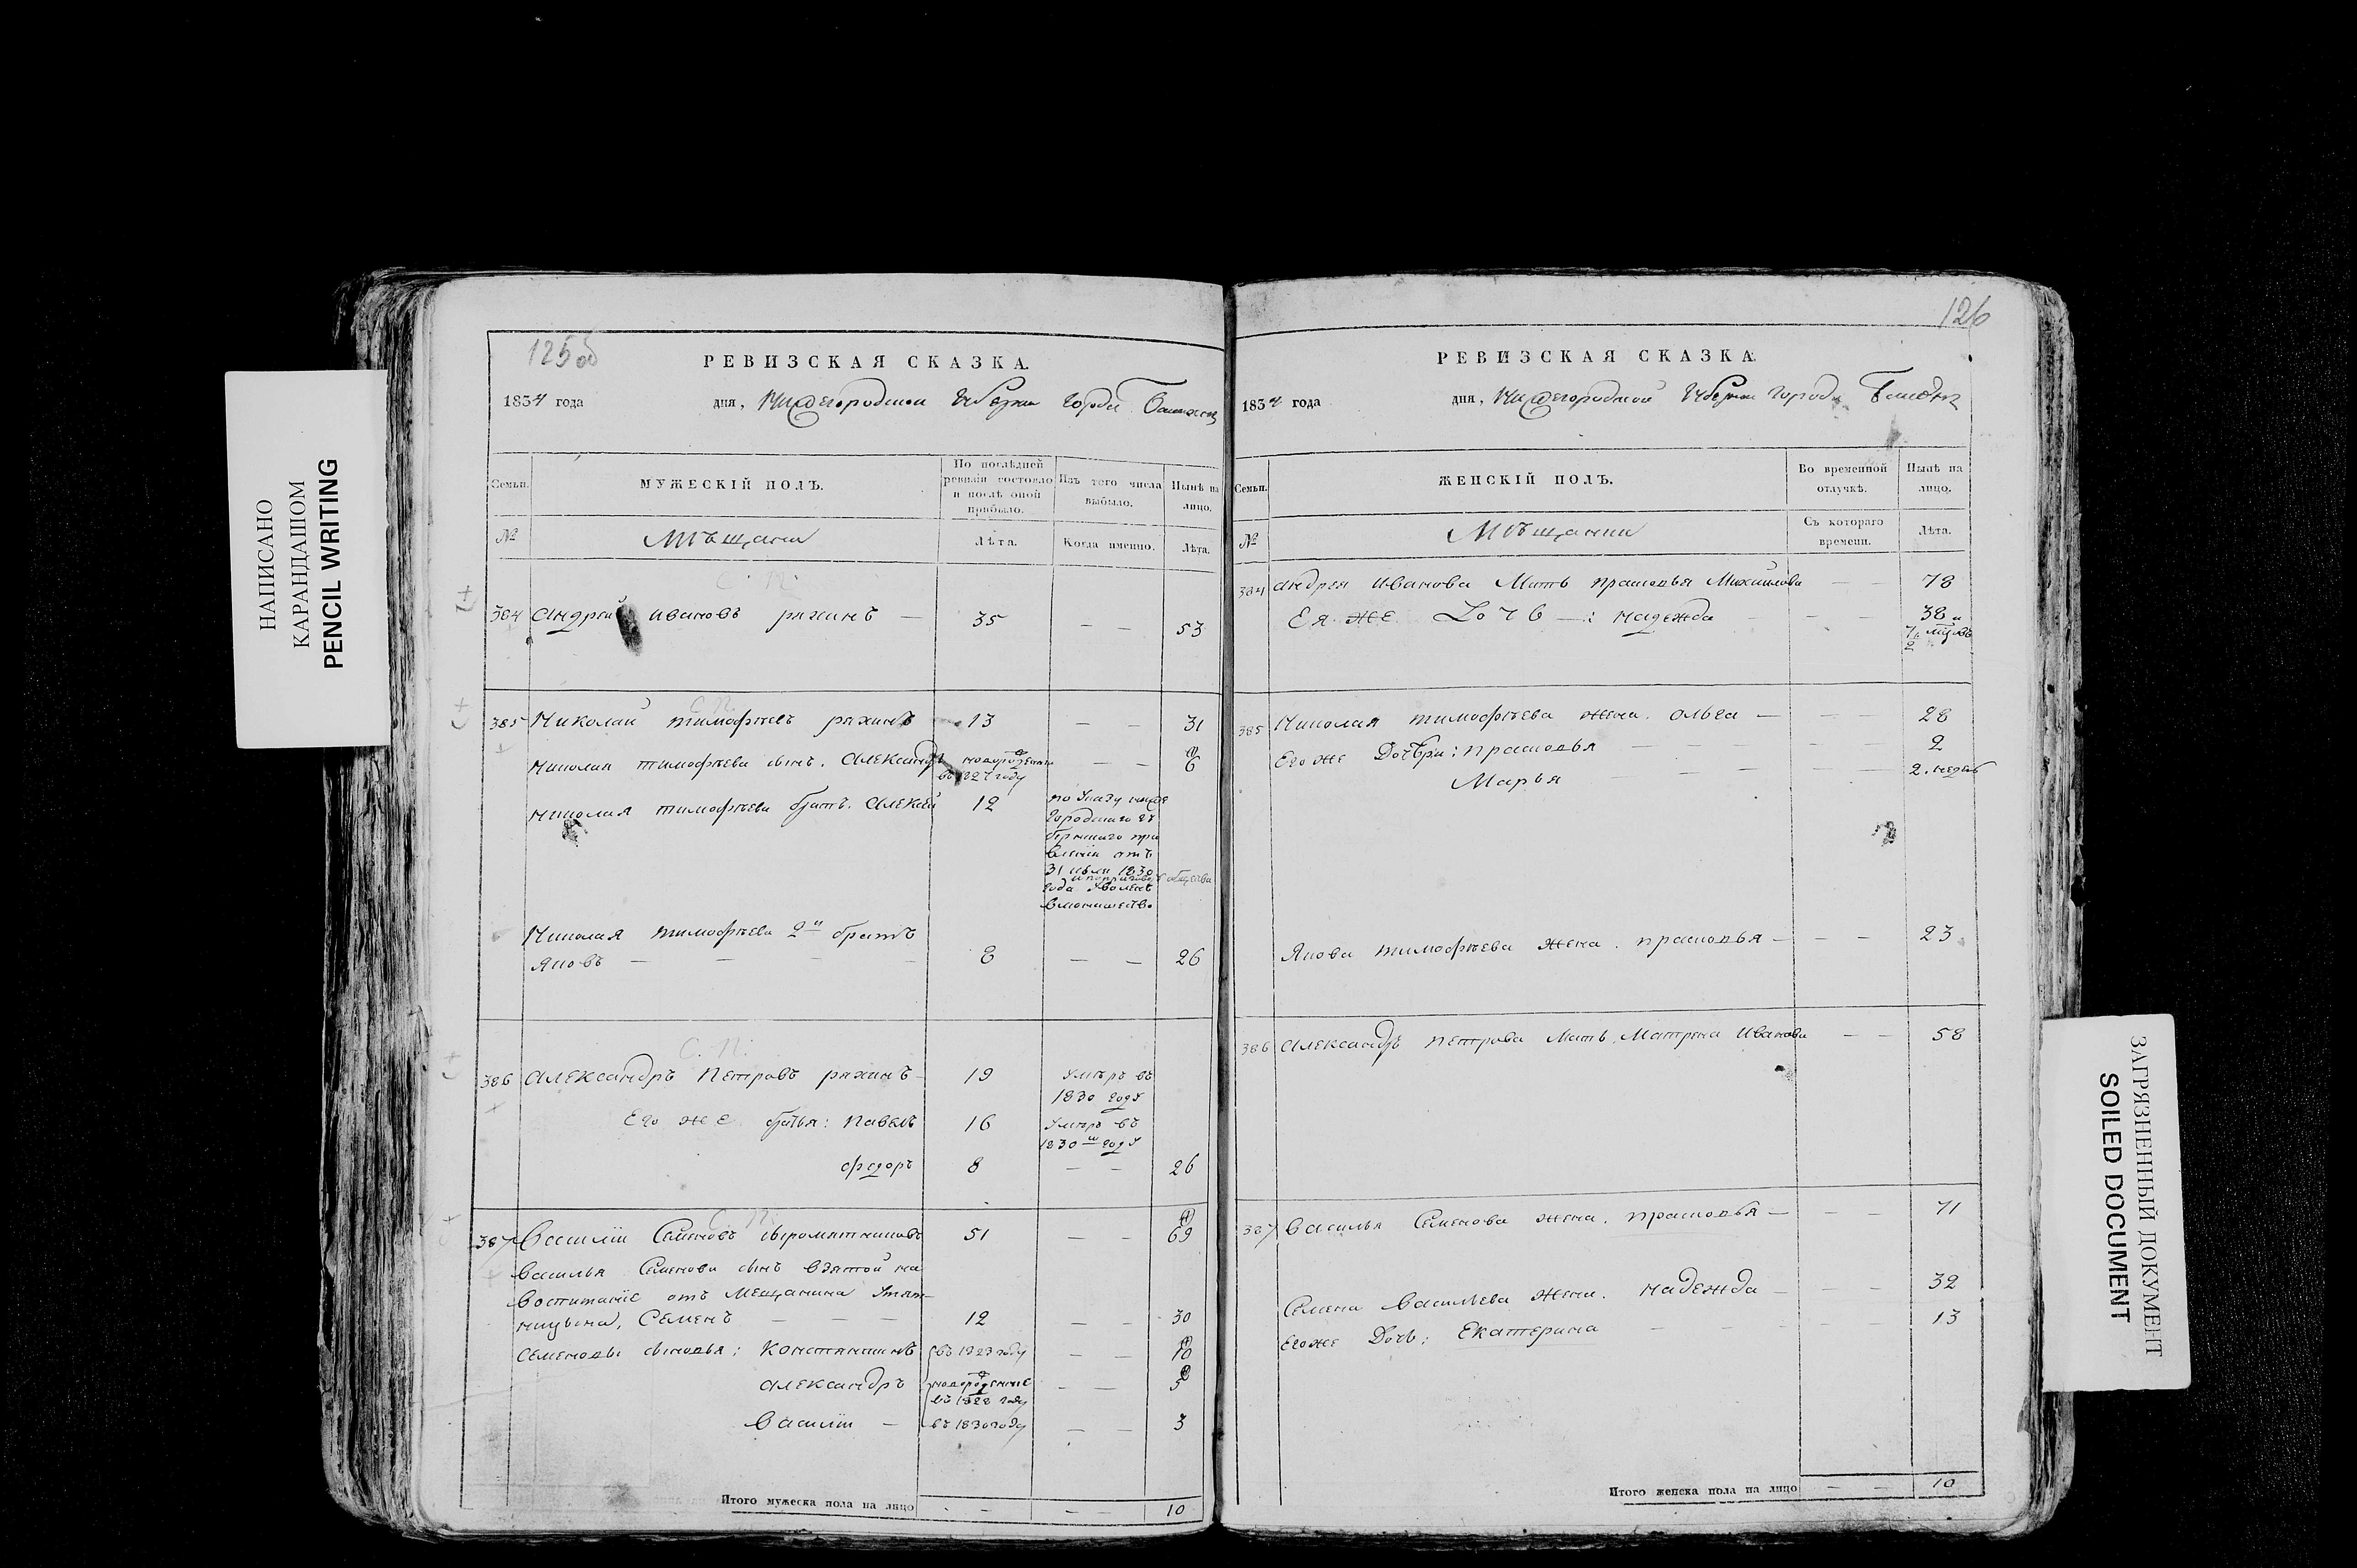 НАПИСАНО
КАРАНДАШОМ
PENCIL WRITING
125 об
РЕВИЗСКАЯ СКАЗКА.
1834 года дня, Нижегородской Губернии города
Семьи.
МУЖЕСКІЙ ПОЛЪ.
По послѣдней ревизіи состояло и послѣ оной прибыло.
Изъ того числа выбыло.
Нынѣ на лицо.
№
Мѣщани
Лѣта.
Когда именно.
Лѣта.
С. П.
384 Андрей Ивановъ ряхинъ — 35 — — 53
С. П.
385 Николай тимофѣевъ ряхинъ 13 — — 31
Николая тимофѣева сынъ. Александръ новорожденный — — 6
въ 1827 году
Николая тимофѣева братъ. Алексей 12 по Указу ниже
городскаго гу
бернскаго пра
вленія отъ
31 июля 1830
года Уволенъ
в монашество
Николая тимофѣева 2й братъ
Яковъ — — — — 8 — — 26
С. П.
386 Александръ Петровъ ряхинъ — 19 Умеръ въ
1830 году
Его же братья: Павелъ 16 Умеръ въ
1830м году
федоръ 8 — — 26
С. П.
387 Василій Семеновъ сыромятниковъ 51 — — 69
Василья Семенова сынъ взятой на
Воспитаніе отъ Мещанина
Семенъ — — — 12 — — 30
Семеновы сыновья: Константинъ въ 1823 году — — 10
Александръ новорожденные — — 5
въ 1828 году
Василій — въ 1830 году — — 3
Итого мужеска пола на лицо — — — 10
126
РЕВИЗСКАЯ СКАЗКА.
1834 года дня, Нижегородской Губернии города
Семьи.
ЖЕНСКІЙ ПОЛЪ.
Во временной отлучкѣ.
Нынѣ на лицо.
№
Мѣщанки
Съ котораго времени.
Лѣта.
384 Андрея Иванова Мать прасковья Михайлова — — 78
Ея же Дочь —: надежда — — — 38 и
385 Николая тимофѣева жена. ольга — — — 28
Его же Дочери: прасковья — — — 2
Марья — — — — 2. недель
Якова тимофѣева жена. прасковья — — — 23
386 Александръ петрова Мать, Матрена Иванова — — 58
387 Василья Семенова жена. прасковья — — — 71
Семена Васильева жена. надежда — — — 32
Его же Дочь: Екатерина — — — — 13
Итого женска пола на лицо — — 10
ЗАГРЯЗНЕННЫЙ ДОКУМЕНТ
SOILED DOCUMENT